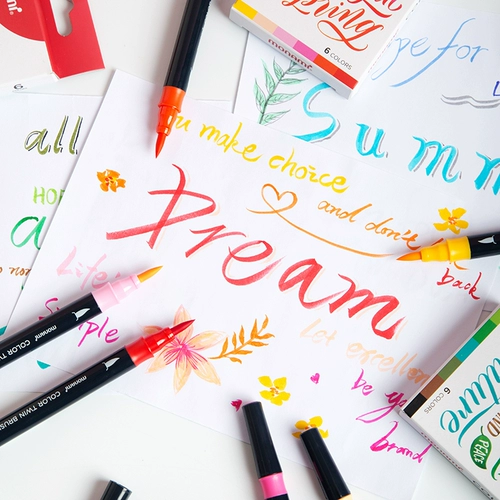 monami
Spring
6 COLORS
monami
pe for
Summ
all
u make choice
and don't
back
HO
a
Dream
Life
Simple
let excellen
be yo
brand
monami COLOR TWIN BRUSH
monami COLOR TWIN BRUS
6 COLORS
AND
PEACE
ature